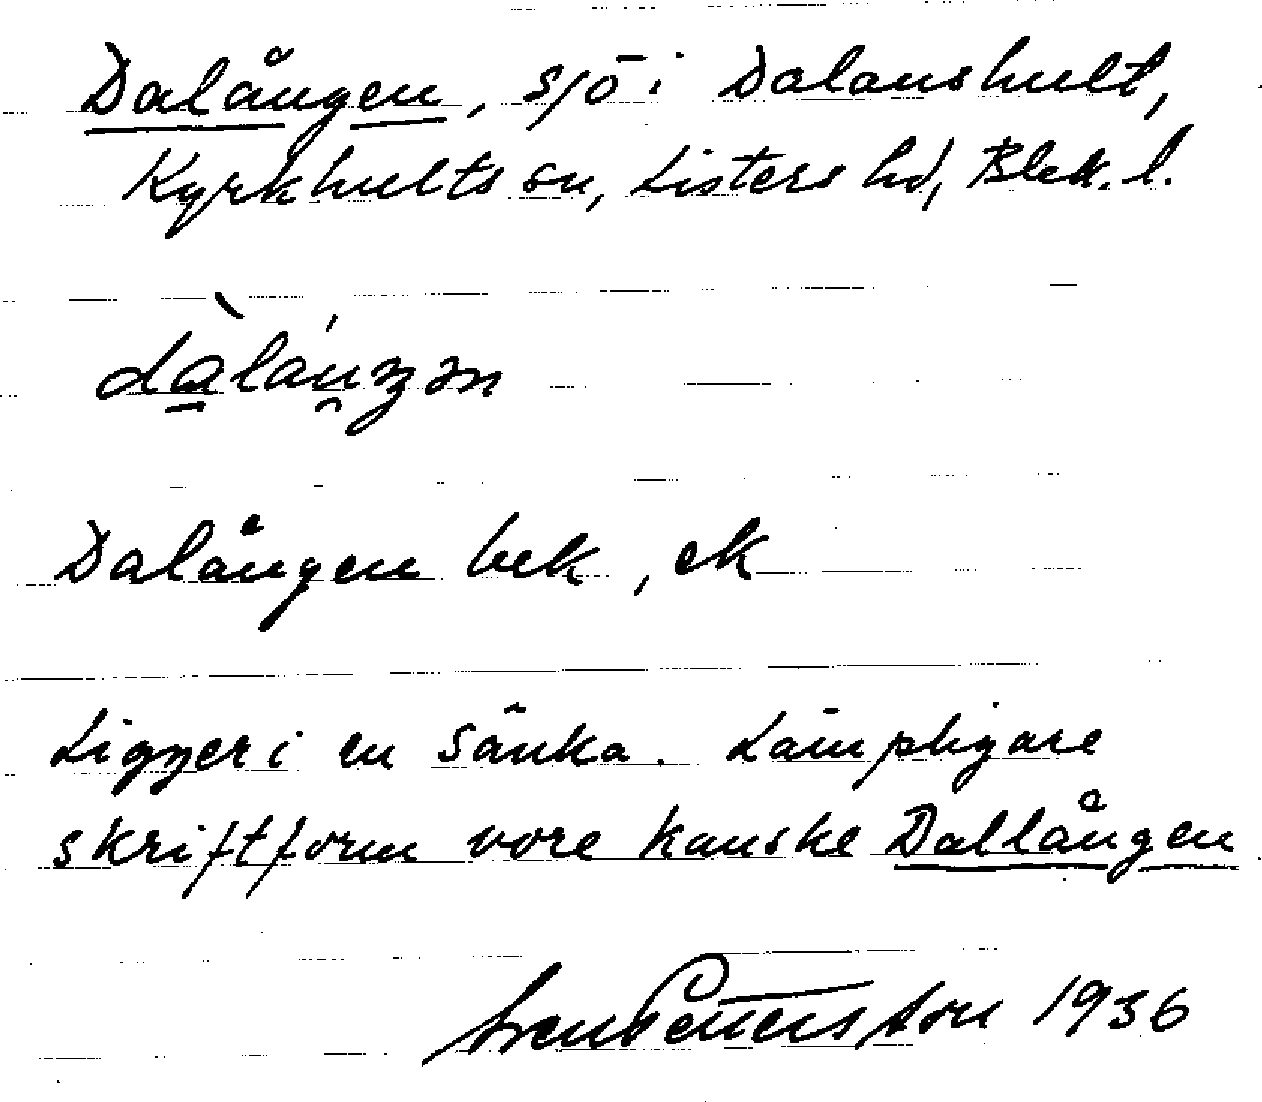 Dalången, sjö i Dalanshult,
Kyrkhults sn, Listers hd, Blek. l.
dàláŋən
Dalången bek, ek
Ligger i en sänka. Lämpligare
skriftform vore kanske Dallången
Sven Petterson 1936